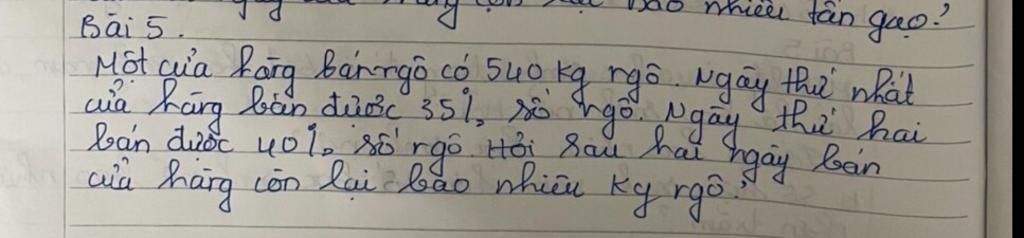 bao nhiêu tấn gạo?
Bài 5.
Một cửa hàng bán ngô có 540 kg ngô. Ngày thứ nhất
cửa hàng bán được 35% số ngô. Ngày thứ hai
bán được 40% số ngô. Hỏi sau hai ngày bán
cửa hàng còn lại bao nhiêu kg ngô?